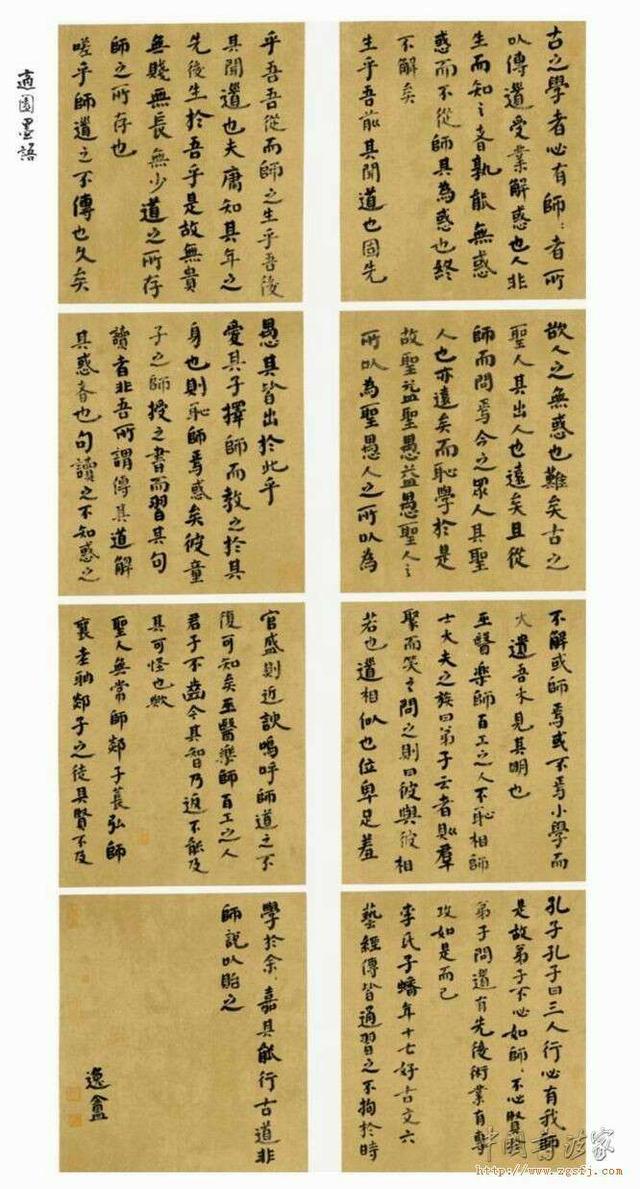 古之學者必有師〻者所
以傳道受業解惑也人非
生而知之者孰能無惑
惑而不從師其為惑也終
不解矣
生乎吾前其聞道也固先
乎吾吾從而師之生乎吾後
其聞道也夫庸知其年之
先後生於吾乎是故無貴
無賤無長無少道之所存
師之所存也
嗟乎師道之不傳也久矣
欲人之無惑也難矣古之
聖人其出人也遠矣且從
師而問焉今之眾人其聖
人也亦遠矣而恥學於是
故聖益聖愚益愚聖人之
所以為聖愚人之所以為
愚其皆出於此乎
愛其子擇師而教之於其
身也則恥師焉惑矣彼童
子之師授之書而習其句
讀者非吾所謂傳其道解
其惑者也句讀之不知惑之
不解或師焉或不焉小學而
大遺吾未見其明也
巫醫樂師百工之人不恥相師
士大夫之族曰弟子云者則群
聚而笑之問之則曰彼與彼相
若也道相似也位卑足羞
官盛則近諛嗚呼師道之不
復可知矣巫醫樂師百工之人
君子不齒今其智乃返不能及
其可怪也歟
聖人無常師郯子萇弘師
襄老聃郯子之徒其賢不及
孔子孔子曰三人行必有我師
是故弟子不必如師〻不必賢於
弟子問道有先後術業有專
攻如是而已
李氏子蟠年十七好古文六
藝經傳皆通習之不拘於時
學於余嘉其能行古道非
師說以貽之
逸盦
適園墨語
中国书法家
http://www.zgsfj.com